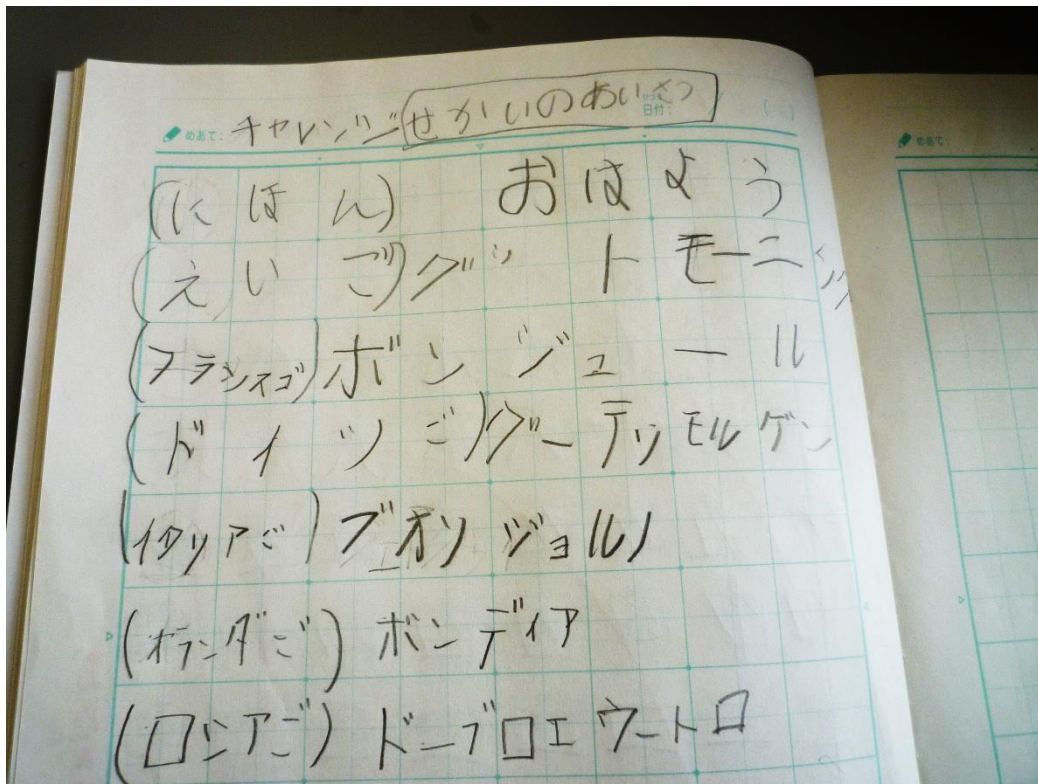 めあて: チャレンジ せかいのあいさつ 日付:
めあて:
(にほん) おはよう
(えいご) グットモーニング
(フランスゴ) ボンジュール
(ドイツご) グーテンモルゲン
(イタリアご) ブオンジョルノ
(オランダご) ボンディア
(ロシアご) ドーブロエウートロ